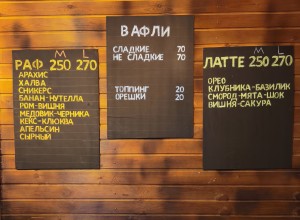 M L
РАФ 250 270
АРАХИС
ХАЛВА
СНИКЕРС
БАНАН-НУТЕЛЛА
РОМ-ВИШНЯ
МЕДОВИК-ЧЕРНИКА
КЕКС-КЛЮКВА
АПЕЛЬСИН
СЫРНЫЙ
ВАФЛИ
СЛАДКИЕ 70
НЕ СЛАДКИЕ 70
ТОППИНГ 20
ОРЕШКИ 20
M L
ЛАТТЕ 250 270
ОРЕО
КЛУБНИКА-БАЗИЛИК
СМОРОД-МЯТА-ШОК
ВИШНЯ-САКУРА